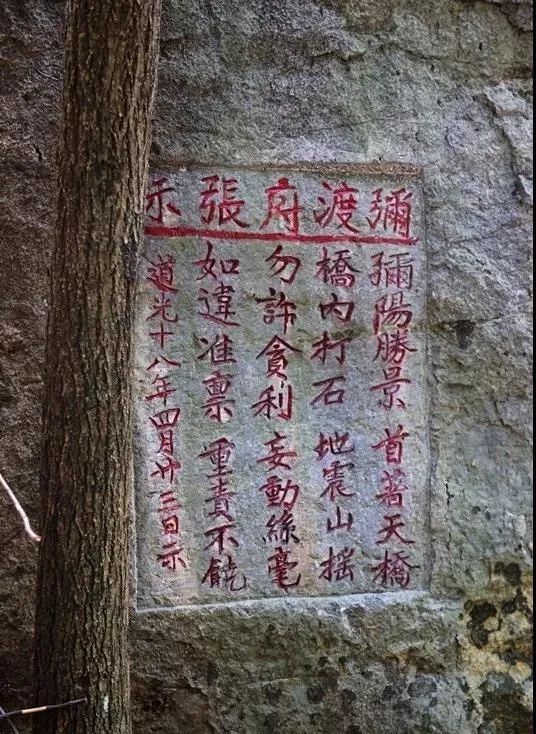 彌渡府張示
彌陽勝景 首著天橋
橋內打石 地震山摇
勿許貪利 妄動絲毫
如違准稟 重責不饒
道光十八年四月廿三日示